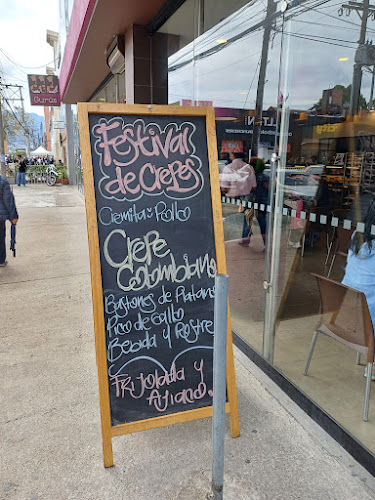 Gurús
Festival
de Crepes
Cremita de Pollo
Crepe
Colombiano
Bastones de Platano
Pico de Gallo
Bebida y Postre
Frijolada y
Ajiaco